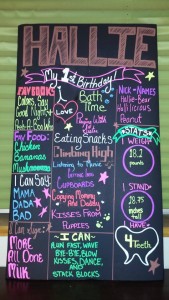 HALLIE
My 1st Birthday!
FAV BOOKS
Babies, Say
Good Night
Peek-A-Boo Who
FAV FOOD
Chicken
Bananas
Mushrooms
I Can Say!
MAMA
DADA
BAD
Can sign
MORE
All Done
Milk
I
Bath
Time
Playing With
Eating Snacks
Climbing High
Listening to Music
Cupboards
Copying Mommy
And Daddy
Kisses From
Puppies
-I CAN-
RUN FAST, WAVE
BYE-BYE, BLOW
KISSES, DANCE,
AND
STACK BLOCKS
NICK-NAMES
Hallie-Bear
Hallilicious
Peanut
STATS
WEIGH
18.2
pounds
I STAND
28.75
inches
tall
HAVE
4
Teeth